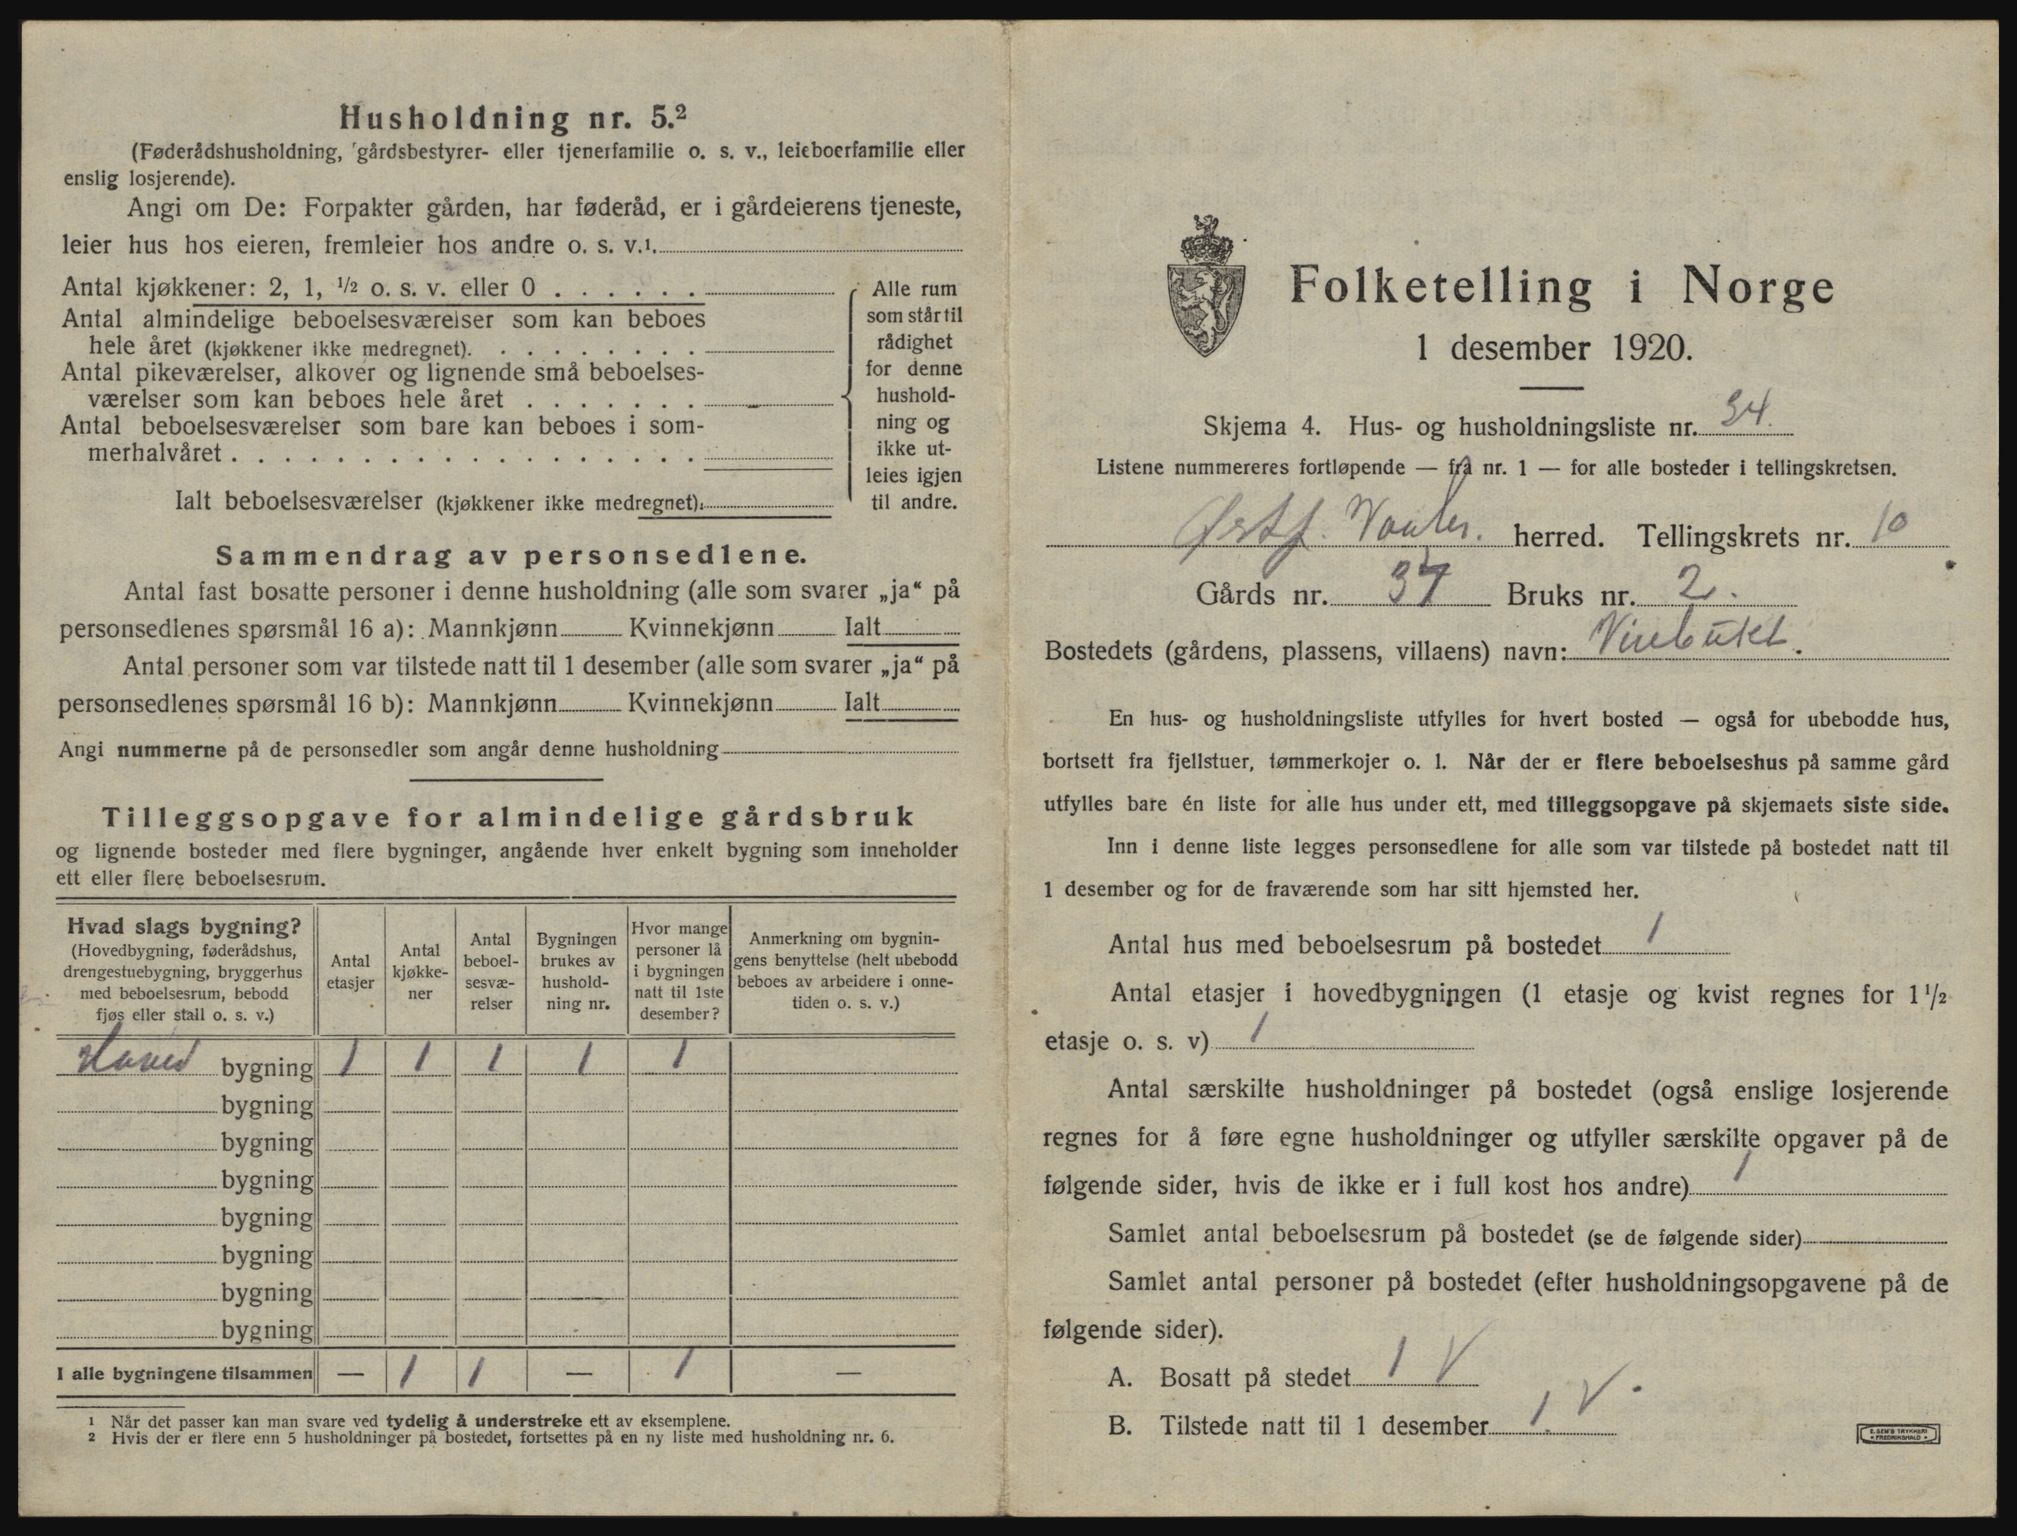 Husholdning nr. 5.²
(Føderådshusholdning, gårdsbestyrer- eller tjenerfamilie o. s. v., leieboerfamilie eller
enslig losjerende).
Angi om De: Forpakter gården, har føderåd, er i gårdeierens tjeneste,
leier hus hos eieren, fremleier hos andre o. s. v.¹.
Antal kjøkkener: 2, 1, ½ o. s. v. eller 0 . . . . . .
Antal almindelige beboelsesværelser som kan beboes
hele året (kjøkkener ikke medregnet). . . . . . . . .
Antal pikeværelser, alkover og lignende små beboelses-
værelser som kan beboes hele året . . . . . . .
Antal beboelsesværelser som bare kan beboes i som-
merhalvåret . . . . . . . . . . . . . . . . . .
Ialt beboelsesværelser (kjøkkener ikke medregnet):
Alle rum
som står til
rådighet
for denne
hushold-
ning og
ikke ut-
leies igjen
til andre.
Sammendrag av personsedlene.
Antal fast bosatte personer i denne husholdning (alle som svarer „ja“ på
personsedlenes spørsmål 16 a): Mannkjønn Kvinnekjønn Ialt
Antal personer som var tilstede natt til 1 desember (alle som svarer „ja“ på
personsedlenes spørsmål 16 b): Mannkjønn Kvinnekjønn Ialt
Angi nummerne på de personsedler som angår denne husholdning
Tilleggsopgave for almindelige gårdsbruk
og lignende bosteder med flere bygninger, angående hver enkelt bygning som inneholder
ett eller flere beboelsesrum.
Hvad slags bygning?
(Hovedbygning, føderådshus,
drengestuebygning, bryggerhus
med beboelsesrum, bebodd
fjøs eller stall o. s. v.)
Antal
etasjer
Antal
kjøkke-
ner
Antal
beboel-
sesvæ-
relser
Bygningen
brukes av
hushold-
ning nr.
Hvor mange
personer lå
i bygningen
natt til 1ste
desember?
Anmerkning om bygnin-
gens benyttelse (helt ubebodd
beboes av arbeidere i onne-
tiden o. s. v.)
Hoved bygning 1 1 1 1 1
bygning
bygning
bygning
bygning
bygning
bygning
bygning
I alle bygningene tilsammen — 1 1 — 1 —
¹ Når det passer kan man svare ved tydelig å understreke ett av eksemplene.
² Hvis der er flere enn 5 husholdninger på bostedet, fortsettes på en ny liste med husholdning nr. 6.
Folketelling i Norge
1 desember 1920.
Skjema 4. Hus- og husholdningsliste nr. 34.
Listene nummereres fortløpende — fra nr. 1 — for alle bosteder i tellingskretsen.
Østf. Vaaler. herred. Tellingskrets nr. 10
Gårds nr. 37 Bruks nr. 2.
Bostedets (gårdens, plassens, villaens) navn:
En hus- og husholdningsliste utfylles for hvert bosted — også for ubebodde hus,
bortsett fra fjellstuer, tømmerkojer o. l. Når der er flere beboelseshus på samme gård
utfylles bare én liste for alle hus under ett, med tilleggsopgave på skjemaets siste side.
Inn i denne liste legges personsedlene for alle som var tilstede på bostedet natt til
1 desember og for de fraværende som har sitt hjemsted her.
Antal hus med beboelsesrum på bostedet 1
Antal etasjer i hovedbygningen (1 etasje og kvist regnes for 1½
etasje o. s. v) 1
Antal særskilte husholdninger på bostedet (også enslige losjerende
regnes for å føre egne husholdninger og utfyller særskilte opgaver på de
følgende sider, hvis de ikke er i full kost hos andre) 1
Samlet antal beboelsesrum på bostedet (se de følgende sider)
Samlet antal personer på bostedet (efter husholdningsopgavene på de
følgende sider).
A. Bosatt på stedet 1 V
B. Tilstede natt til 1 desember 1 V.
E. SEM'S TRYKKERI
• FREDRIKSHALD •